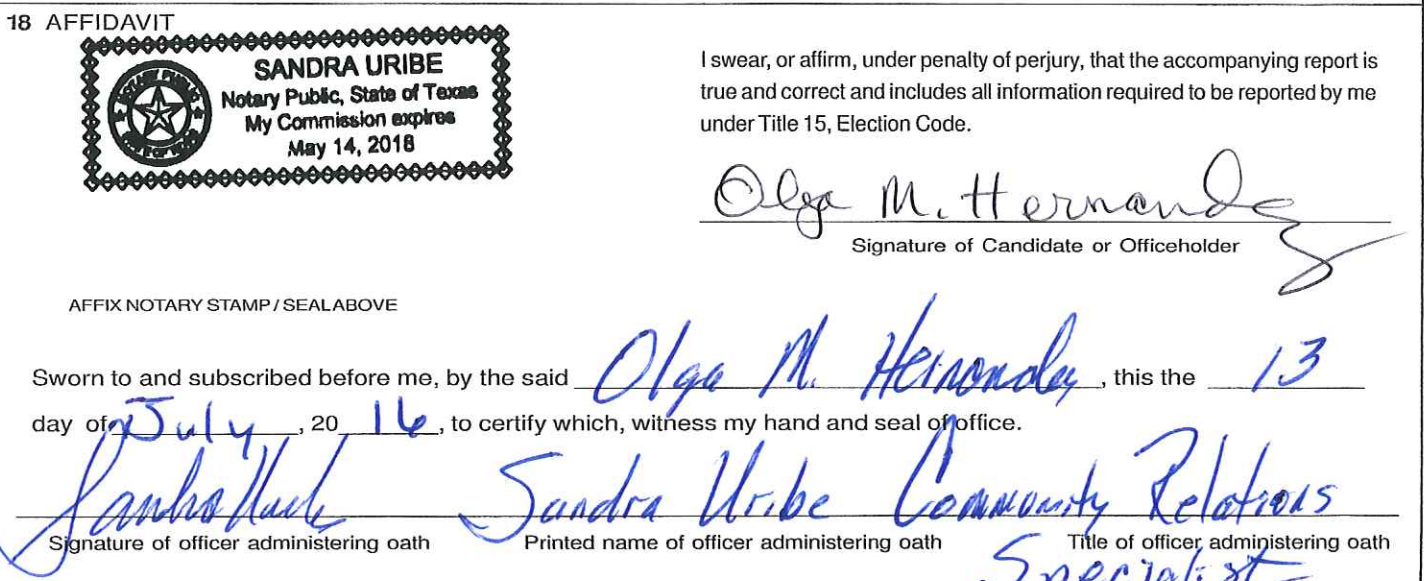 18 AFFIDAVIT
SANDRA URIBE
Notary Public, State of Texas
My Commission expires
May 14, 2018
NOTARY PUBLIC
STATE OF TEXAS
I swear, or affirm, under penalty of perjury, that the accompanying report is
true and correct and includes all information required to be reported by me
under Title 15, Election Code.
Olga M. Hernandez
Signature of Candidate or Officeholder
AFFIX NOTARY STAMP / SEAL ABOVE
Sworn to and subscribed before me, by the said Olga M. Hernandez, this the 13
day of July, 20 16, to certify which, witness my hand and seal of office.
Sandra Uribe Community Relations
Signature of officer administering oath Printed name of officer administering oath Title of officer administering oath
Specialist